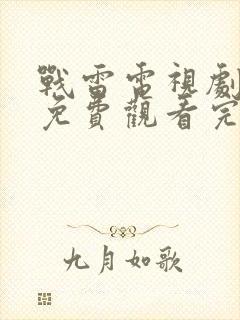 戰雷電視劇
免費觀看完
九月如歌